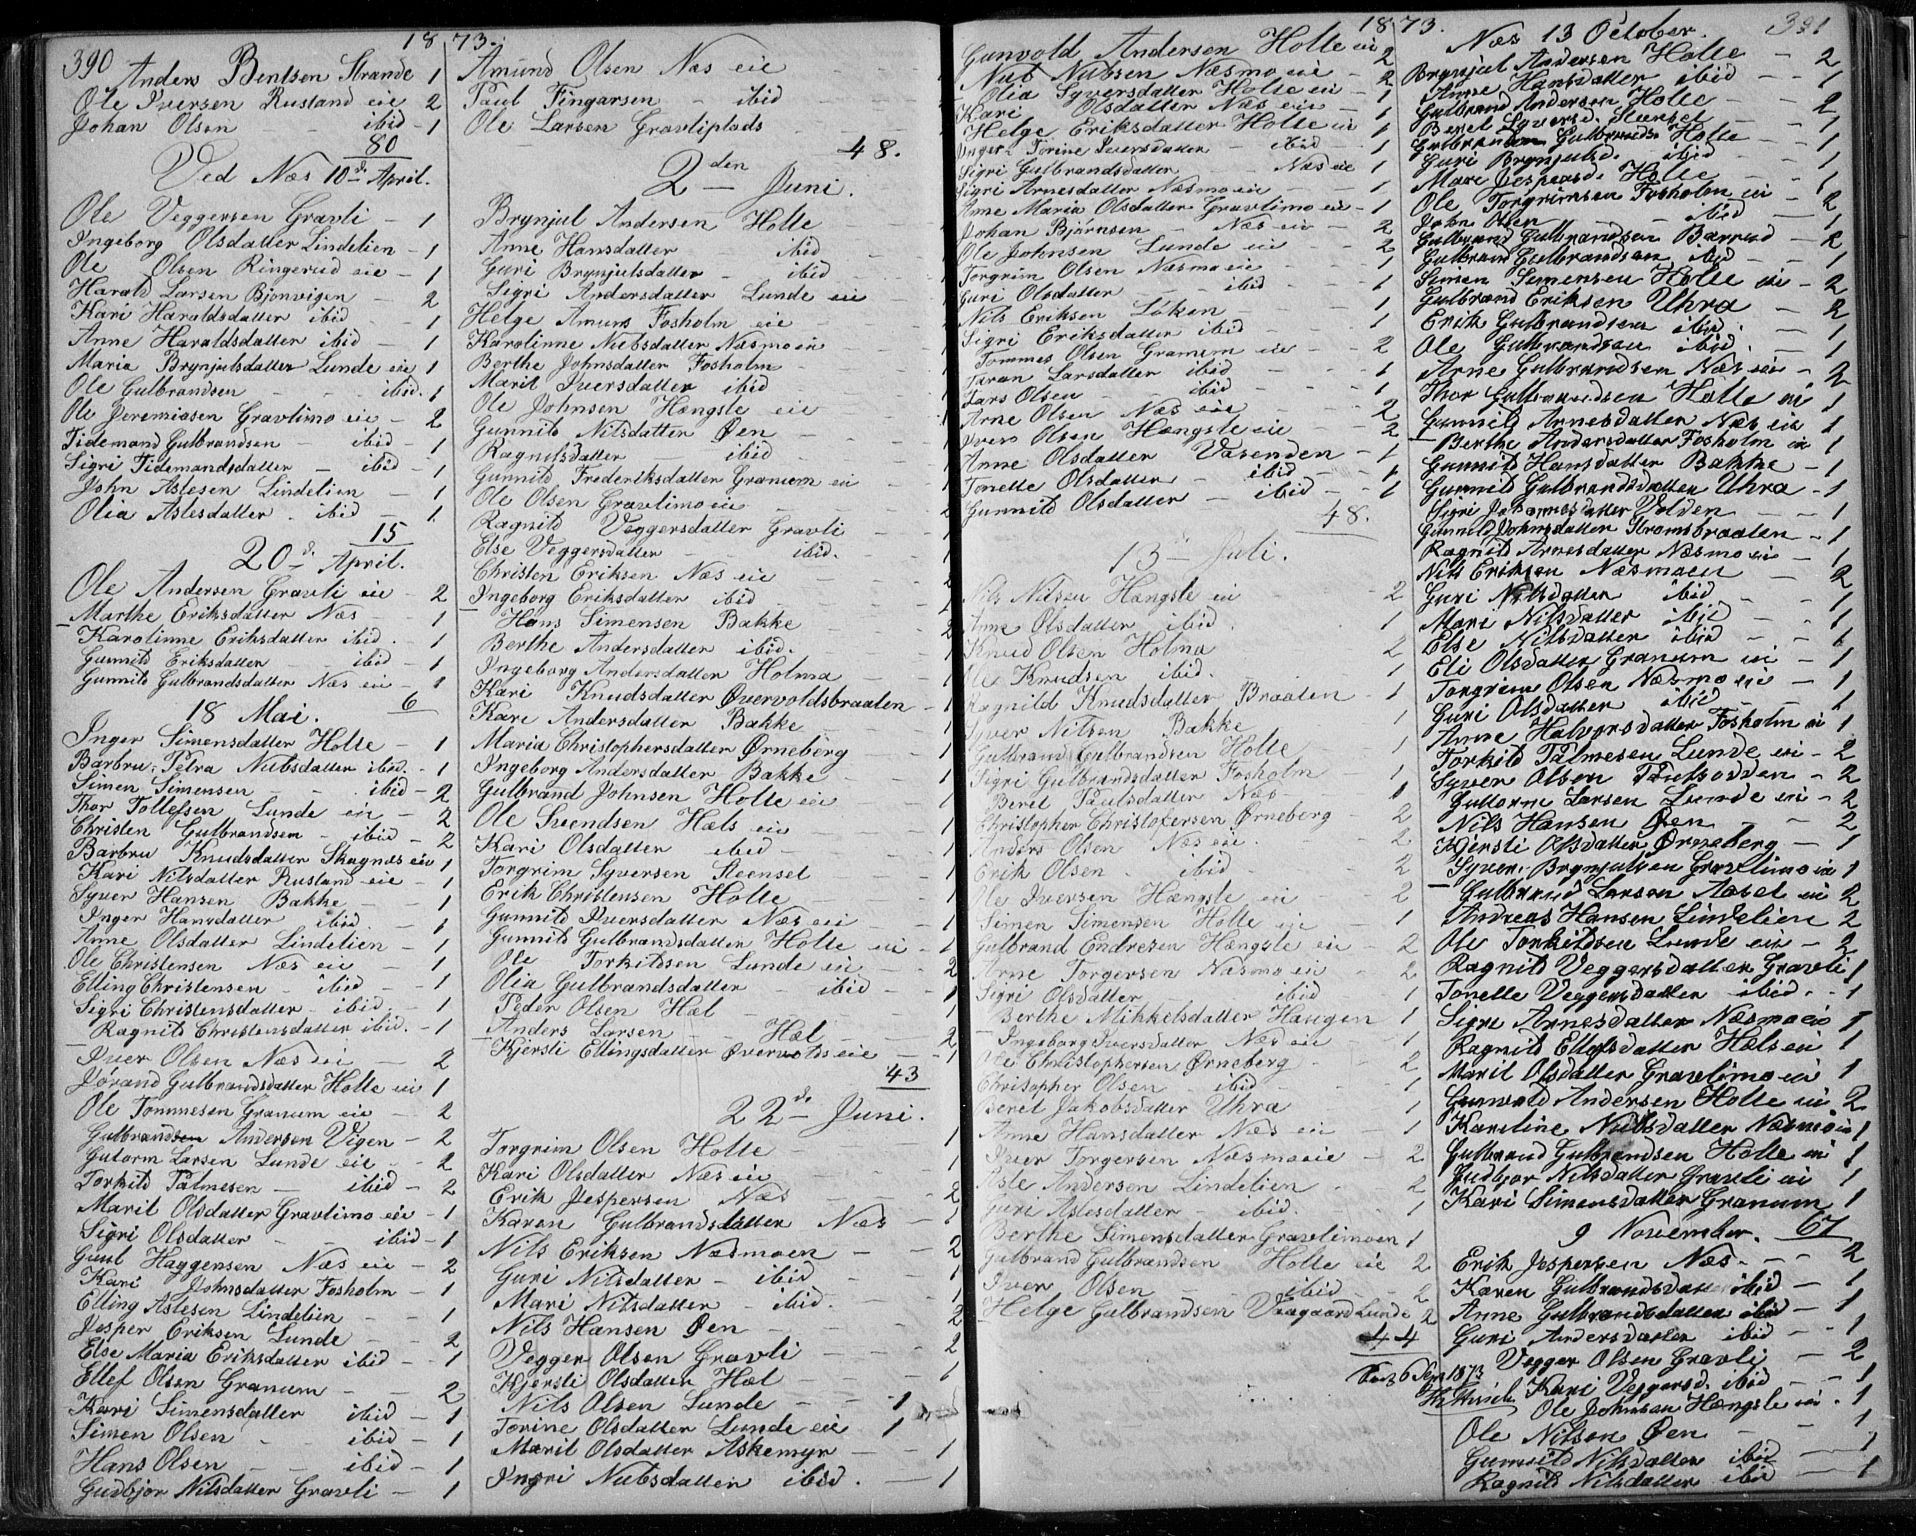 390
1873.
Anders Bentsen Strande 1
Ole Iversen Rustand eie 2
Johan Olsen - ibid - 1
80
Ved Næs 10de April.
Ole Veggersen Gravli - 1
Ingeborg Olsdatter Lindelien - 1
Ole Olsen Ringerud eie - 1
Harald Larsen Bjonvigen - 2
Kari Haraldsdatter ibid - 1
Anne Haraldsdatter ibid - 1
Maria Brynjulsdatter Lunde eie 1
Ole Gulbrandsen - ibid. 1
Ole Jeremiasen Gravlimo eie - 2
Tidemand Gulbrandsen - ibid - 1
Sigri Tidemandsdatter - ibid - 1
John Aslesen Lindelien - 1
Olia Aslesdatter - ibid - 1
15
20de April.
Ole Andersen Gravli eie - 2
Marthe Eriksdatter Næs - 1
Karolinne Eriksdatter ibid. 1
Gunnild Eriksdatter - ibid - 1
Gunnild Gulbrandsdatter Næs eie - 1
6
18 Mai.
Inger Simensdatter Holte - 1
Barbru Petra Nubsdatter ibid. - 1
Simen Simensen - ibid - 2
Thor Tollefsen Lunde eie - 2
Christen Gulbrandsen - ibid - 2
Barbru Knudsdatter Skagnæs eie 1
Kari Nilsdatter Rustand eie - 1
Syver Hansen Bakke - 1
Inger Hansdatter ibid. 1
Anne Olsdatter Lindelien - 1
Ole Christensen Næs eie - 1
Elling Christensen - ibid - 1
Sigri Christensdatter - ibid - 1
Ragnild Christensdatter ibid. - 1
Iver Olsen Næs eie - 2
Jørand Gulbrandsdatter Holte eie 1
Ole Tommesen Granum eie - 2
Gulbrandsen Andersen Vigen - 2
Gutorm Larsen Lunde eie - 2
Torkild Palmesen - ibid - 2
Marit Olsdatter Gravlimo eie - 1
Sigri Olsdatter - ibid - 1
Guul Haggensen Næs eie - 2
Kari Johnsdatter Fosholm - 1
Elling Aslesen Lindelien - 1
Jesper Eriksen Lunde - 2
Else Maria Eriksdatter ibid - 1
Ellef Olsen Granum - 2
Kari Simensdatter ibid - 1
Simen Olsen - ibid - 1
Hans Olsen - ibid - 1
Gudbjor Nilsdatter Gravli - 1
Amund Olsen Næs eie
Paul Fingarsen - ibid
Ole Larsen Gravliplads
48.
2den Juni.
Brynjul Andersen Holte
Anne Hansdatter ibid
Guri Brynjulsdatter - ibid
Sigri Andersdatter Lunde eie
Helge Amuns Fosholm eie
Karolinne Nubsdatter Næsmoein
Berthe Johnsdatter Fosholm
Marit Iversdatter ibid
Ole Johnsen Hængsle eie
Gunnild Nilsdatter Øen
Ragnilsdatter - ibid
Gunnild Frederiksdatter Granum ei
Ole Olsen Gravlimo eie
Ragnild Veggersdatter Gravli
Else Veggersdatter - ibid.
Christen Eriksen Næs eie
Ingeborg Eriksdatter ibid
Hans Simensen Bakke
Berthe Andersdatter ibid.
Ingeborg Andersdatter Holma
Kari Knudsdatter Øvervoldsbraaten - 1
Kari Andersdatter Bakke
Maria Christophersdatter Ørneberg 1
Ingeborg Andersdatter Bakke - 1
Gulbrand Johnsen Holte eie 1
Ole Svendsen Hæls eie 1
Kari Olsdatter ibid - 1
Torgrim Syversen Steensel 1
Erik Christensen Holte 1
Gunnild Iversdatter Næs eie 1
Gunnild Gulbrandsdatter Holte eie - 1
Ole Torkildsen Lunde eie - 2
Olia Gulbrandsdatter - ibid - 1
Peder Olsen Hæl - 1
Anders Larsen - Hæl - 2
Kjersti Ellingsdatter Øvervolds eie - 1
43
22de Juni.
Torgrim Olsen Holte - 1
Kari Olsdatter Næs eie 1
Erik Jespersen Næs - 2
Karen Gulbrandsdatter Næs - 1
Nils Eriksen Næsmoen - 2
Guri Nilsdatter - ibid - 1
Mari Nilsdatter - ibid. 1
Nils Hansen Øen - 2
Vegger Olsen Gravli - 2
Kjersti Olsdatter Hæl - 1
Nils Olsen Lunde - 1
Torine Olsdatter Lunde eie 1
Marit Olsdatter Askemyr - 1
Ingri Nubsdatter ibid. - 1
1873.
391
Gunvold Andersen Holte eie 2
Nub Nubsen Næsmo eie - 2
Olia Syversdatter Holte eie - 1
Kari Olsdatter Næs eie - 1
Helge Eriksdatter Holte eie 1
Inger Torine Iversdatter - ibid - 1
Sigri Gulbrandsdatter Næs eie 1
Sigri Arnesdatter Næsmo eie - 1
Anne Maria Olsdatter Gravlimo eie - 1
Johan Bjørnsen - Næs eie - 2
Ole Johnsen Lunde eie - 2
Torgrim Olsen Næsmo eie 1
Guri Olsdatter - ibid - 1
Nils Eriksen Løken - 1
Sigri Eriksdatter ibid - 1
Tommes Olsen Granum eie - 2
Taran Larsdatter ibid - 1
Lars Olsen - ibid - 1
Arne Olsen Næs eie 2
Iver Olsen Hængsle eie - 2
Anne Olsdatter Vasenden - 1
Tonette Olsdatter - ibid - 1
Gunnild Olsdatter - ibid - 1
48.
13de Juli.
Nils Nilsen Hængsle eie 2
Anne Olsdatter ibid. 1
Knud Olsen Holma 2
Ole Knudsen ibid. 1
Ragnild Knudsdatter Braaten 1
Syver Nilsen Bakke 1
Gulbrand Gulbrandsen Holte 1
Sigri Gulbrandsdatter Fosholm - 1
Beret Paulsdatter Næs - 1
Christopher Christofersen Ørneberg - 2
Anders Olsen Næs eie. 2
Erik Olsen - ibid - 2
Ole Iversen Hængsle eie 2
Simen Simensen Holte eie - 1
Gulbrand Endresen Hængsle eie - 2
Arne Torgersen Næsmo eie - 2
Sigri Olsdatter ibid 1
Berthe Mikkelsdatter Haugen 1
Ingeborg Iversdatter Næs eie - 1
Ole Christophersen Ørneberg 2
Christopher Olsen - ibid - 1
Beret Jakobsdatter Uhra 1
Anne Hansdatter Næs eie - 1
Iver Torgersen Næsmoeie - 2
Asle Andersen Lindelien - 2
Guri Aslesdatter - ibid. 1
Berthe Simensdatter Gravlimoen 1
Gulbrand Gulbrandsen Holte eie 2
Iver Olsen - ibid - 2
Helge Gulbrandsen Vaagaard Lunde 2
44
6 1873
Næs 13 October.
Brynjul Andersen Holte - 2
Anne Hansdatter ibid - 1
Gulbrand Andersen Holte - 2
Beret Syversd. Stensel - 1
Gulbrandsen Gulbrands Holte - 1
Guri Brynjulsd. ibid - 1
Mari Jespersd. Holte - 1
Ole Torgrimsen Fosholm eie - 2
John Olsen - ibid - 1
Gulbrand Gulbrandsen Barrud - 2
Gulbrand Gulbrandsen ibid - 1
Simen Simensen Holte eie - 2
Gulbrand Eriksen Uhra - 2
Erik Gulbrandsen ibid. - 1
Ole Gulbrandsen ibid. - 1
Arne Gulbrandsen Næs eie - 2
Thor Gulbrandsen Holte ei 1
Gunnild Arnesdatter Næs eie 1
Berthe Andersdatter Fosholm ei 1
Gunnild Hansdatter Bakke - 1
Gunnild Gulbrandsdatter Uhra - 1
Sigri Johannesdatter Volden - 1
Gunnild Johnsdatter Stromsbraaten - 1
Ragnild Arnesdatter Næsmo eie - 1
Nils Eriksen Næsmoen - 2
Guri Nilsdatter ibid - 1
Mari Nilsdatter ibid - 1
Else Nilsdatter ibid - 1
Eli Olsdatter Granum eie - 1
Torgrim Olsen Næsmo eie - 1
Guri Olsdatter ibid - 1
Anne Halvorsdatter Fosholm ei 1
Torkild Palmesen Lunde eie - 2
Syver Olsen - 2
Guttorm Larsen Lunde eie - 2
Nils Hansen Øen - 2
Kjersti Olsdatter Ørneberg - 1
Syver Brynjulsen Gravlimo ei 1
Gulbrand Larsen Aaset eie 2
Andreas Hansen Lindelien 2
Ole Torkildsen Lunde eie - 2
Ragnild Veggersdatter Gravli 1
Tonette Veggersdatter ibid. - 1
Sigri Arnesdatter Næsmo ei 1
Ragnild Ellefsdatter Hæls ei 1
Marit Olsdatter Gravlimo ei 1
Gunvold Andersen Holte eie 2
Karoline Nubsdatter Næsmo ei 1
Gulbrand Gulbrandsen Holte ei 1
Gudbjor Nilsdatter Gravli ei 1
Kari Simensdatter Granum 1
67
9 November.
Erik Jespersen Næs - 2
Karen Gulbrandsdatter ibid - 1
Anne Gulbrandsdatter ibid - 1
Guri Andersdatter ibid - 1
Vegger Olsen Gravli - 2
Kari Veggersd. ibid - 1
Ole Johnsen Hængsle ei. 1
Ole Nilsen Øen - 1
Gunnild Nilsdatter ibid - 1
Ragnild Nilsdatter ibid - 1